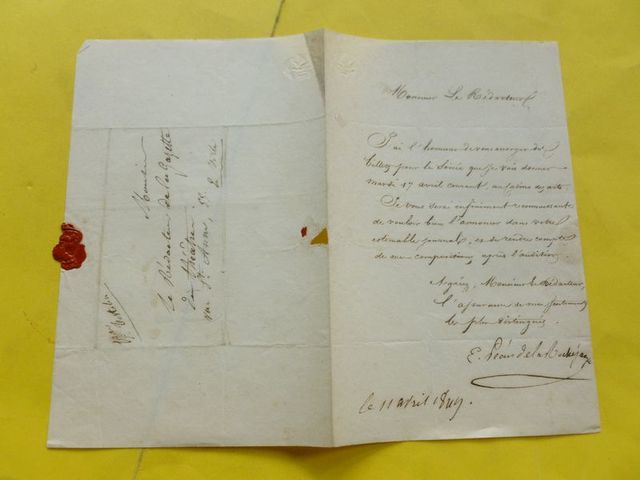 Monsieur Le Rédacteur
J'ai l'honneur de vous envoyer dix
billets pour la Soirée que je vais donner
mardi 17 avril courant, au salon
Je vous serai infiniment reconnaissant
de vouloir bien l'annoncer dans votre
estimable journal, et de rendre compte
de mes compositions après l'audition.
Agréez, Monsieur le Rédacteur,
l'assurance de mes sentiments
les plus distingués.
E. de la
le 11 avril 1849.
Monsieur
Le Rédacteur de la Gazette
des Théâtres
rue Ste Anne, 55.